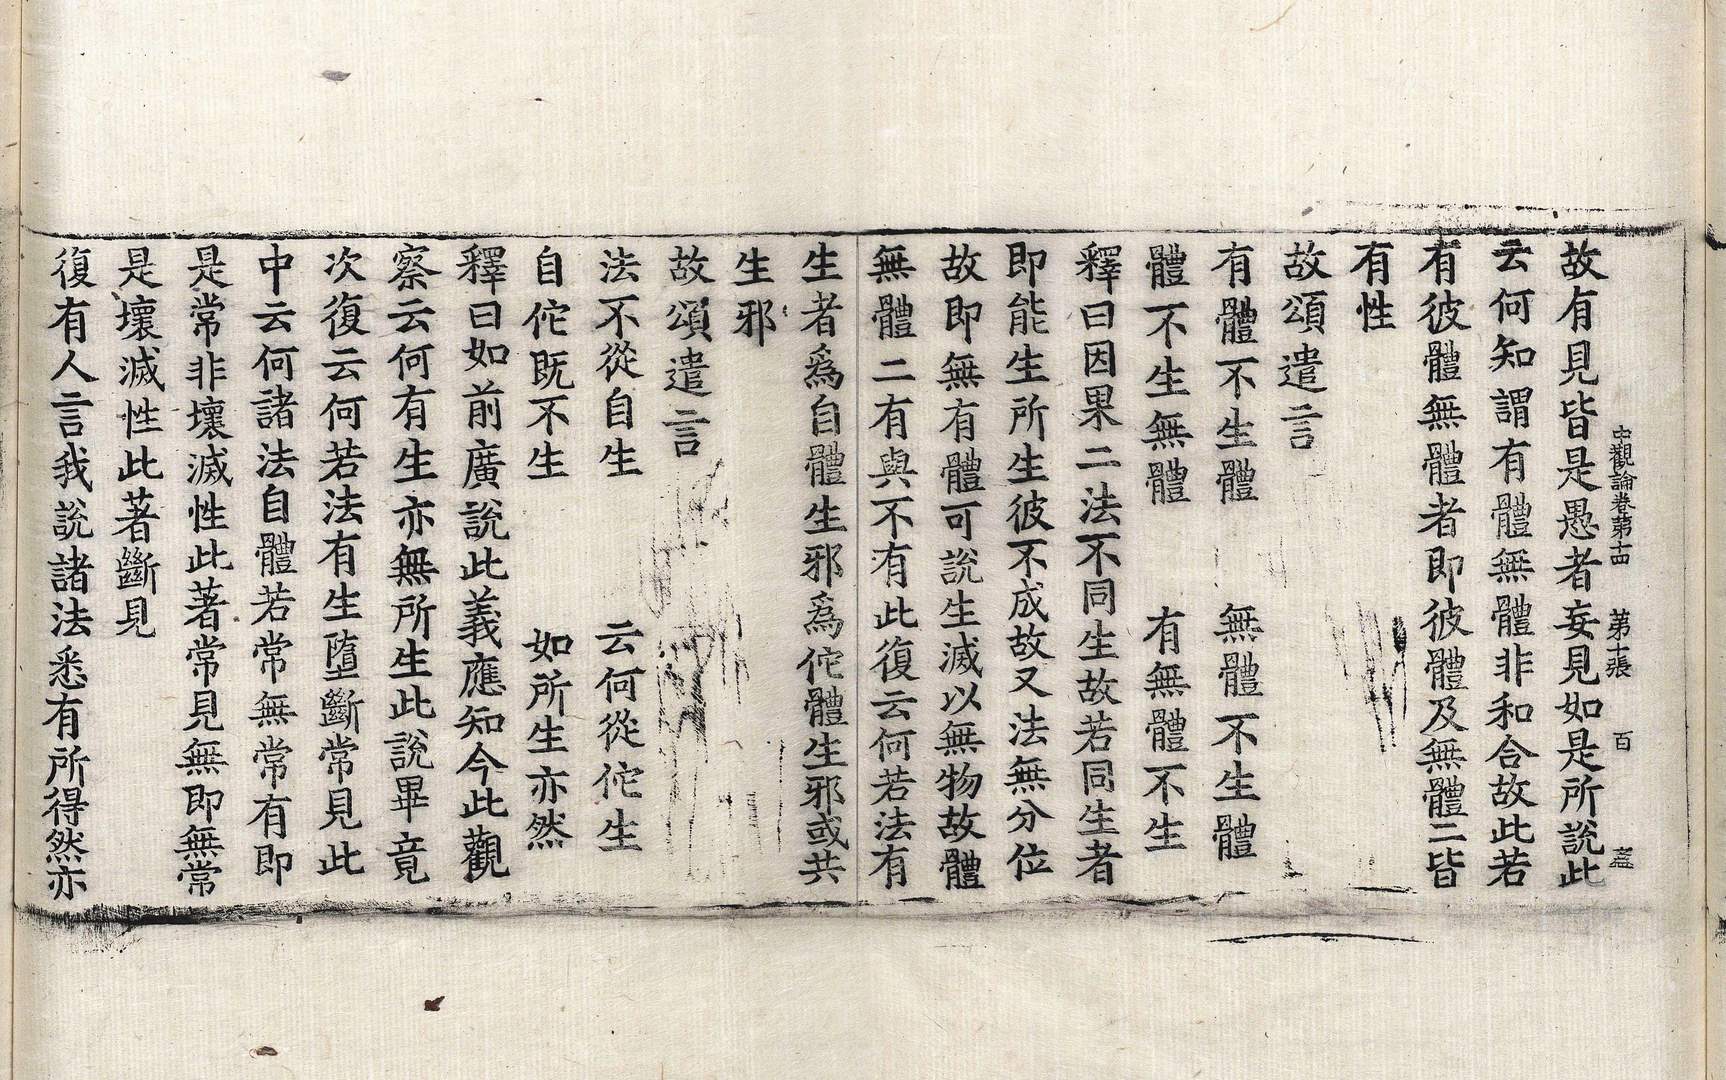 中觀論卷第十四　第十張　百　盡
故有見皆是愚者妄見如是所說此
云何知謂有體無體非和合故此若
有彼體無體者即彼體及無體二皆
有性
故頌遣言
有體不生體　無體不生體
體不生無體　有無體不生
釋曰因果二法不同生故若同生者
即能生所生彼不成故又法無分位
故即無有體可說生滅以無物故體
無體二有與不有此復云何若法有
生者爲自體生邪爲佗體生邪或共
生邪
故頌遣言
法不從自生　云何從佗生
自佗既不生　如所生亦然
釋曰如前廣說此義應知今此觀
察云何有生亦無所生此說畢竟
次復云何若法有生墮斷常見此
中云何諸法自體若常無常有即
是常非壞滅性此著常見無即無常
是壞滅性此著斷見
復有人言我說諸法悉有所得然亦